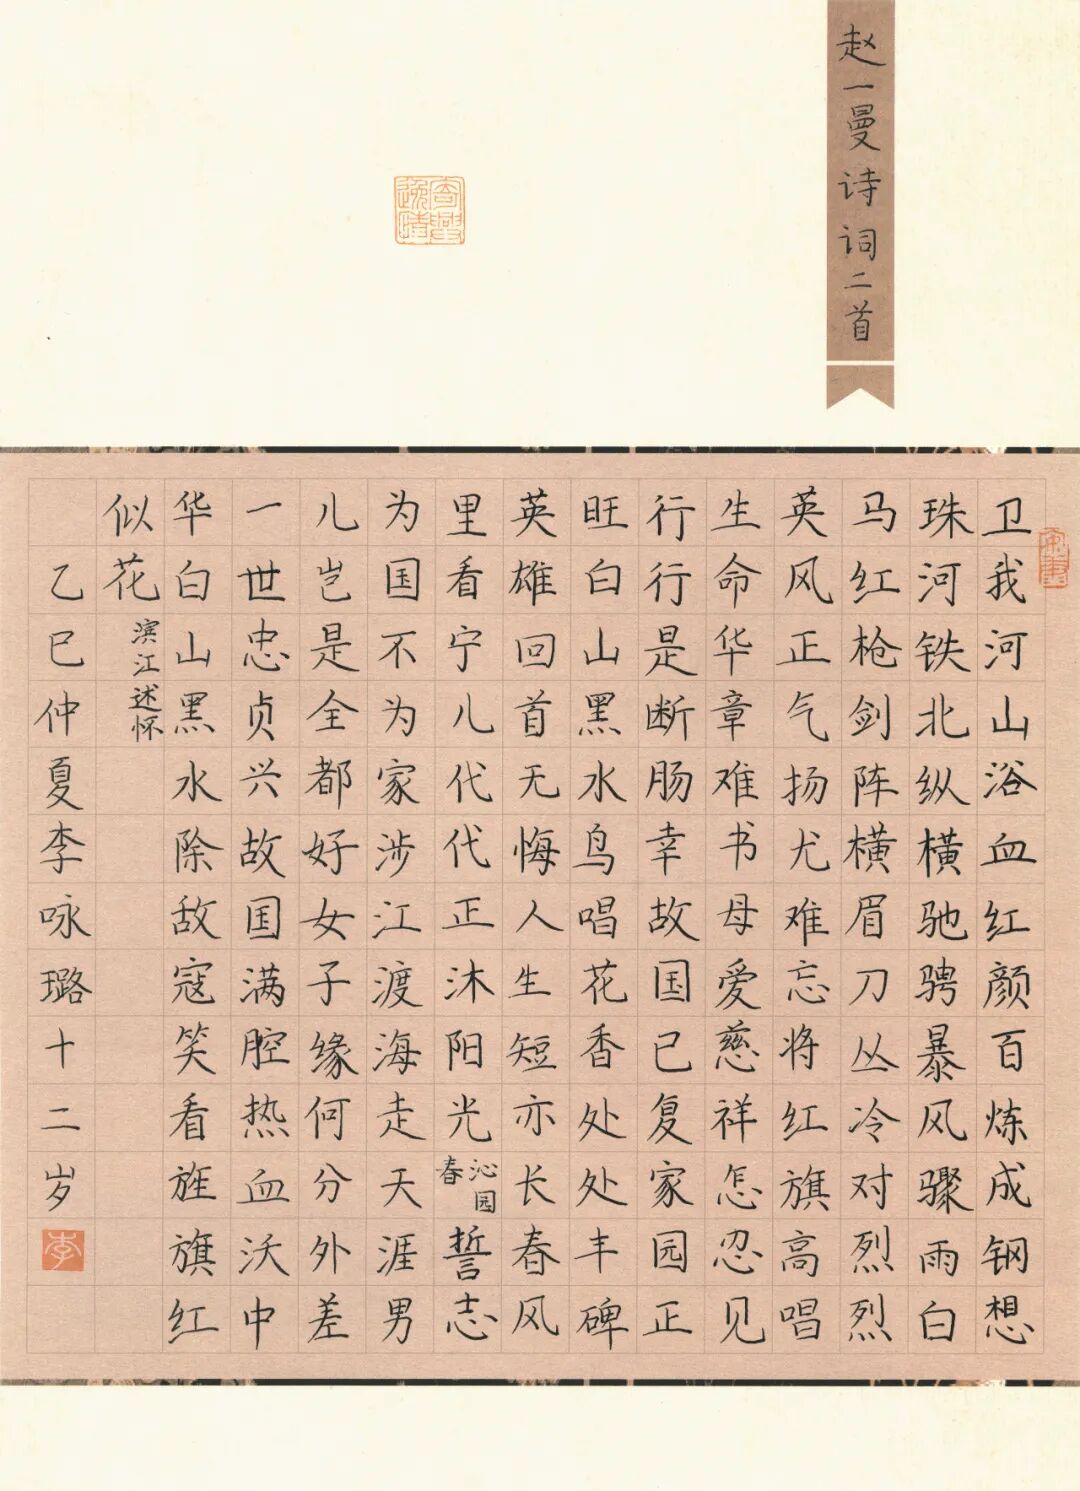 赵一曼诗词二首
卫我河山浴血红颜百炼成钢想
珠河铁北纵横驰骋暴风骤雨白
马红枪剑阵横眉刀丛冷对烈烈
英风正气扬尤难忘将红旗高唱
生命华章难书母爱慈祥怎忍见
行行是断肠幸故国已复家园正
旺白山黑水鸟唱花香处处丰碑
英雄回首无悔人生短亦长春风
里看宁儿代代正沐阳光沁园春誓志
为国不为家涉江渡海走天涯男
儿岂是全都好女子缘何分外差
一世忠贞兴故国满腔热血沃中
华白山黑水除敌寇笑看旌旗红
似花滨江述怀
乙巳仲夏李咏璐十二岁
李